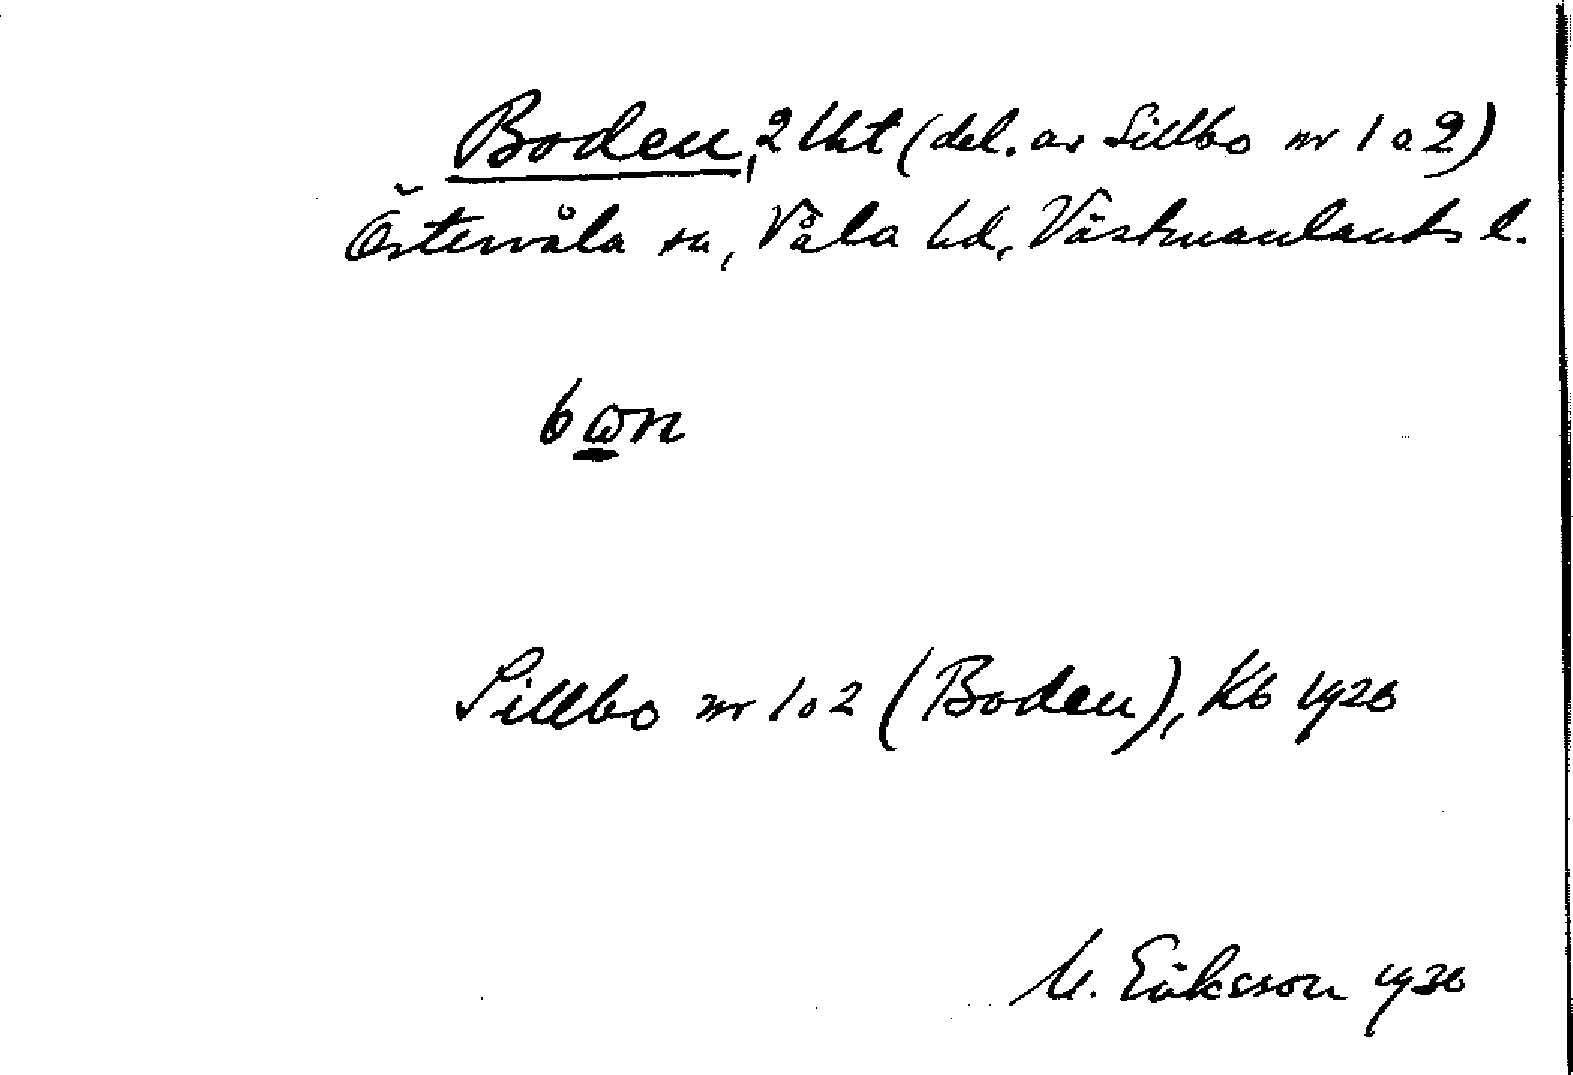 Boden, 2 lht (del. av Sillbo nr 1 o. 2)
Östervåla sn, Våla hd, Västmanlands l.
Sillbo nr 1 o 2 (Boden), Kb
Eriksson